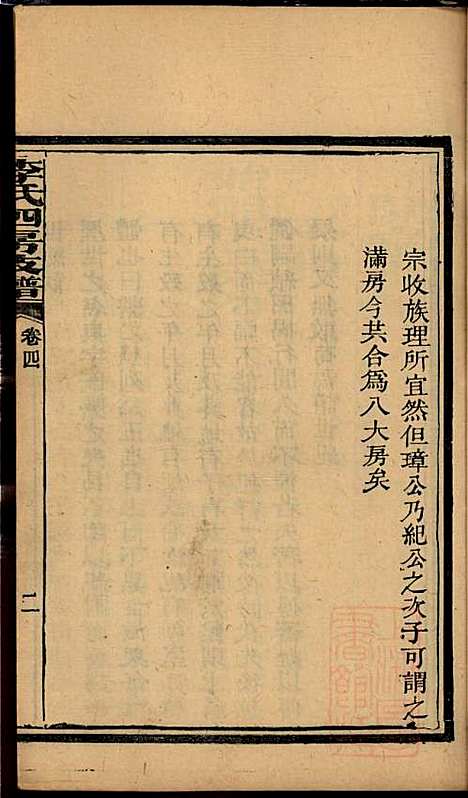 宗收族理所宜然但璋公乃紀公之次子可謂之
滿房今共合為八大房矣
李氏四房支譜
卷四
二